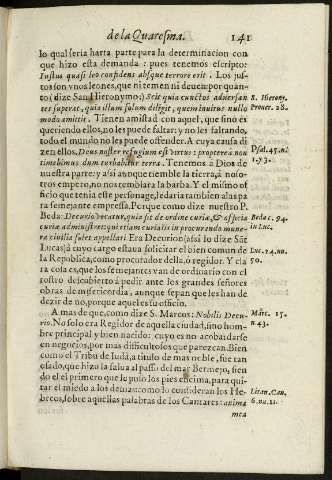 de la Quaresma. 141
lo qual seria harta parte para la determinacion con
que hizo esta demanda: pues tenemos escripto:
Iustus quasi leo confidens absque terrore erit. Los jus-
tos son vnos leones, que ni temen ni deuen por quan-
to (dize San Hieronymo:) Seit quia cunctos aduersan
tes superat, quia illum solum diligit, quem inuitus nullo
modo amittit. Tienen amistad con aquel, que sino es
queriendo ellos, no les puede faltar: y no les faltando,
todo el mundo no les puede offender. A cuya causa di
zen ellos. Deus noster refugium est & virtus: propterea non
timebimus dum turbabitur terra. Tenemos a Dios de
nuestra parte: y assi aunque tiemble la tierra, à noso-
tros empero, no nos temblara la barba. Y el mismo of
ficio que tenia este personage, le incitaria tambien al aspa
ra semejante empressa. Porque como dize nuestro P.
Beda: Decurio vocatur, quia sit de ordine curiæ, & officia
curiæ administret: qui etiam curialis in procurando mune-
ra ciuilia solet appellari. Era Decurion (assi lo dize Sãt
Lucas) à cuyo cargo estaua solicitar el bien comun de
la Republica, como procurador della, ò regidor. Y cla
ra cosa es, que los semejantes van de ordinario con el
rostro descubierto à pedir ante los grandes señores
obras de misericordia, aunque sepan que les han de
dezir de no, porque aquel es su officio.
A mas de que, como dize S. Marcos: Nobilis Decu-
rio. No solo era Regidor de aquella ciudad, sino hom-
bre principal y bien nacido: cuyo es no acobardarse
en negocios, por mas difficultosos que parezcan. Bien
como el Tribu de Iudà, a titulo de mas noble, fue tan
osado, que hizo la salua al passo del mar Bermejo, sien
do el el primero que puso los pies encima, para qui-
tar el miedo a los demas: como lo consideran los He-
breos, sobre aquellas palabras de los Cantares: anima
mea
S. Hierony.
Prouer. 28.
Psal. 45. nu.
1. y 3.
Beda c. 94.
in Luc.
Luc. 24. nu.
50.
Marc. 15.
n. 43.
Litan. Can.
6. nu. 11.